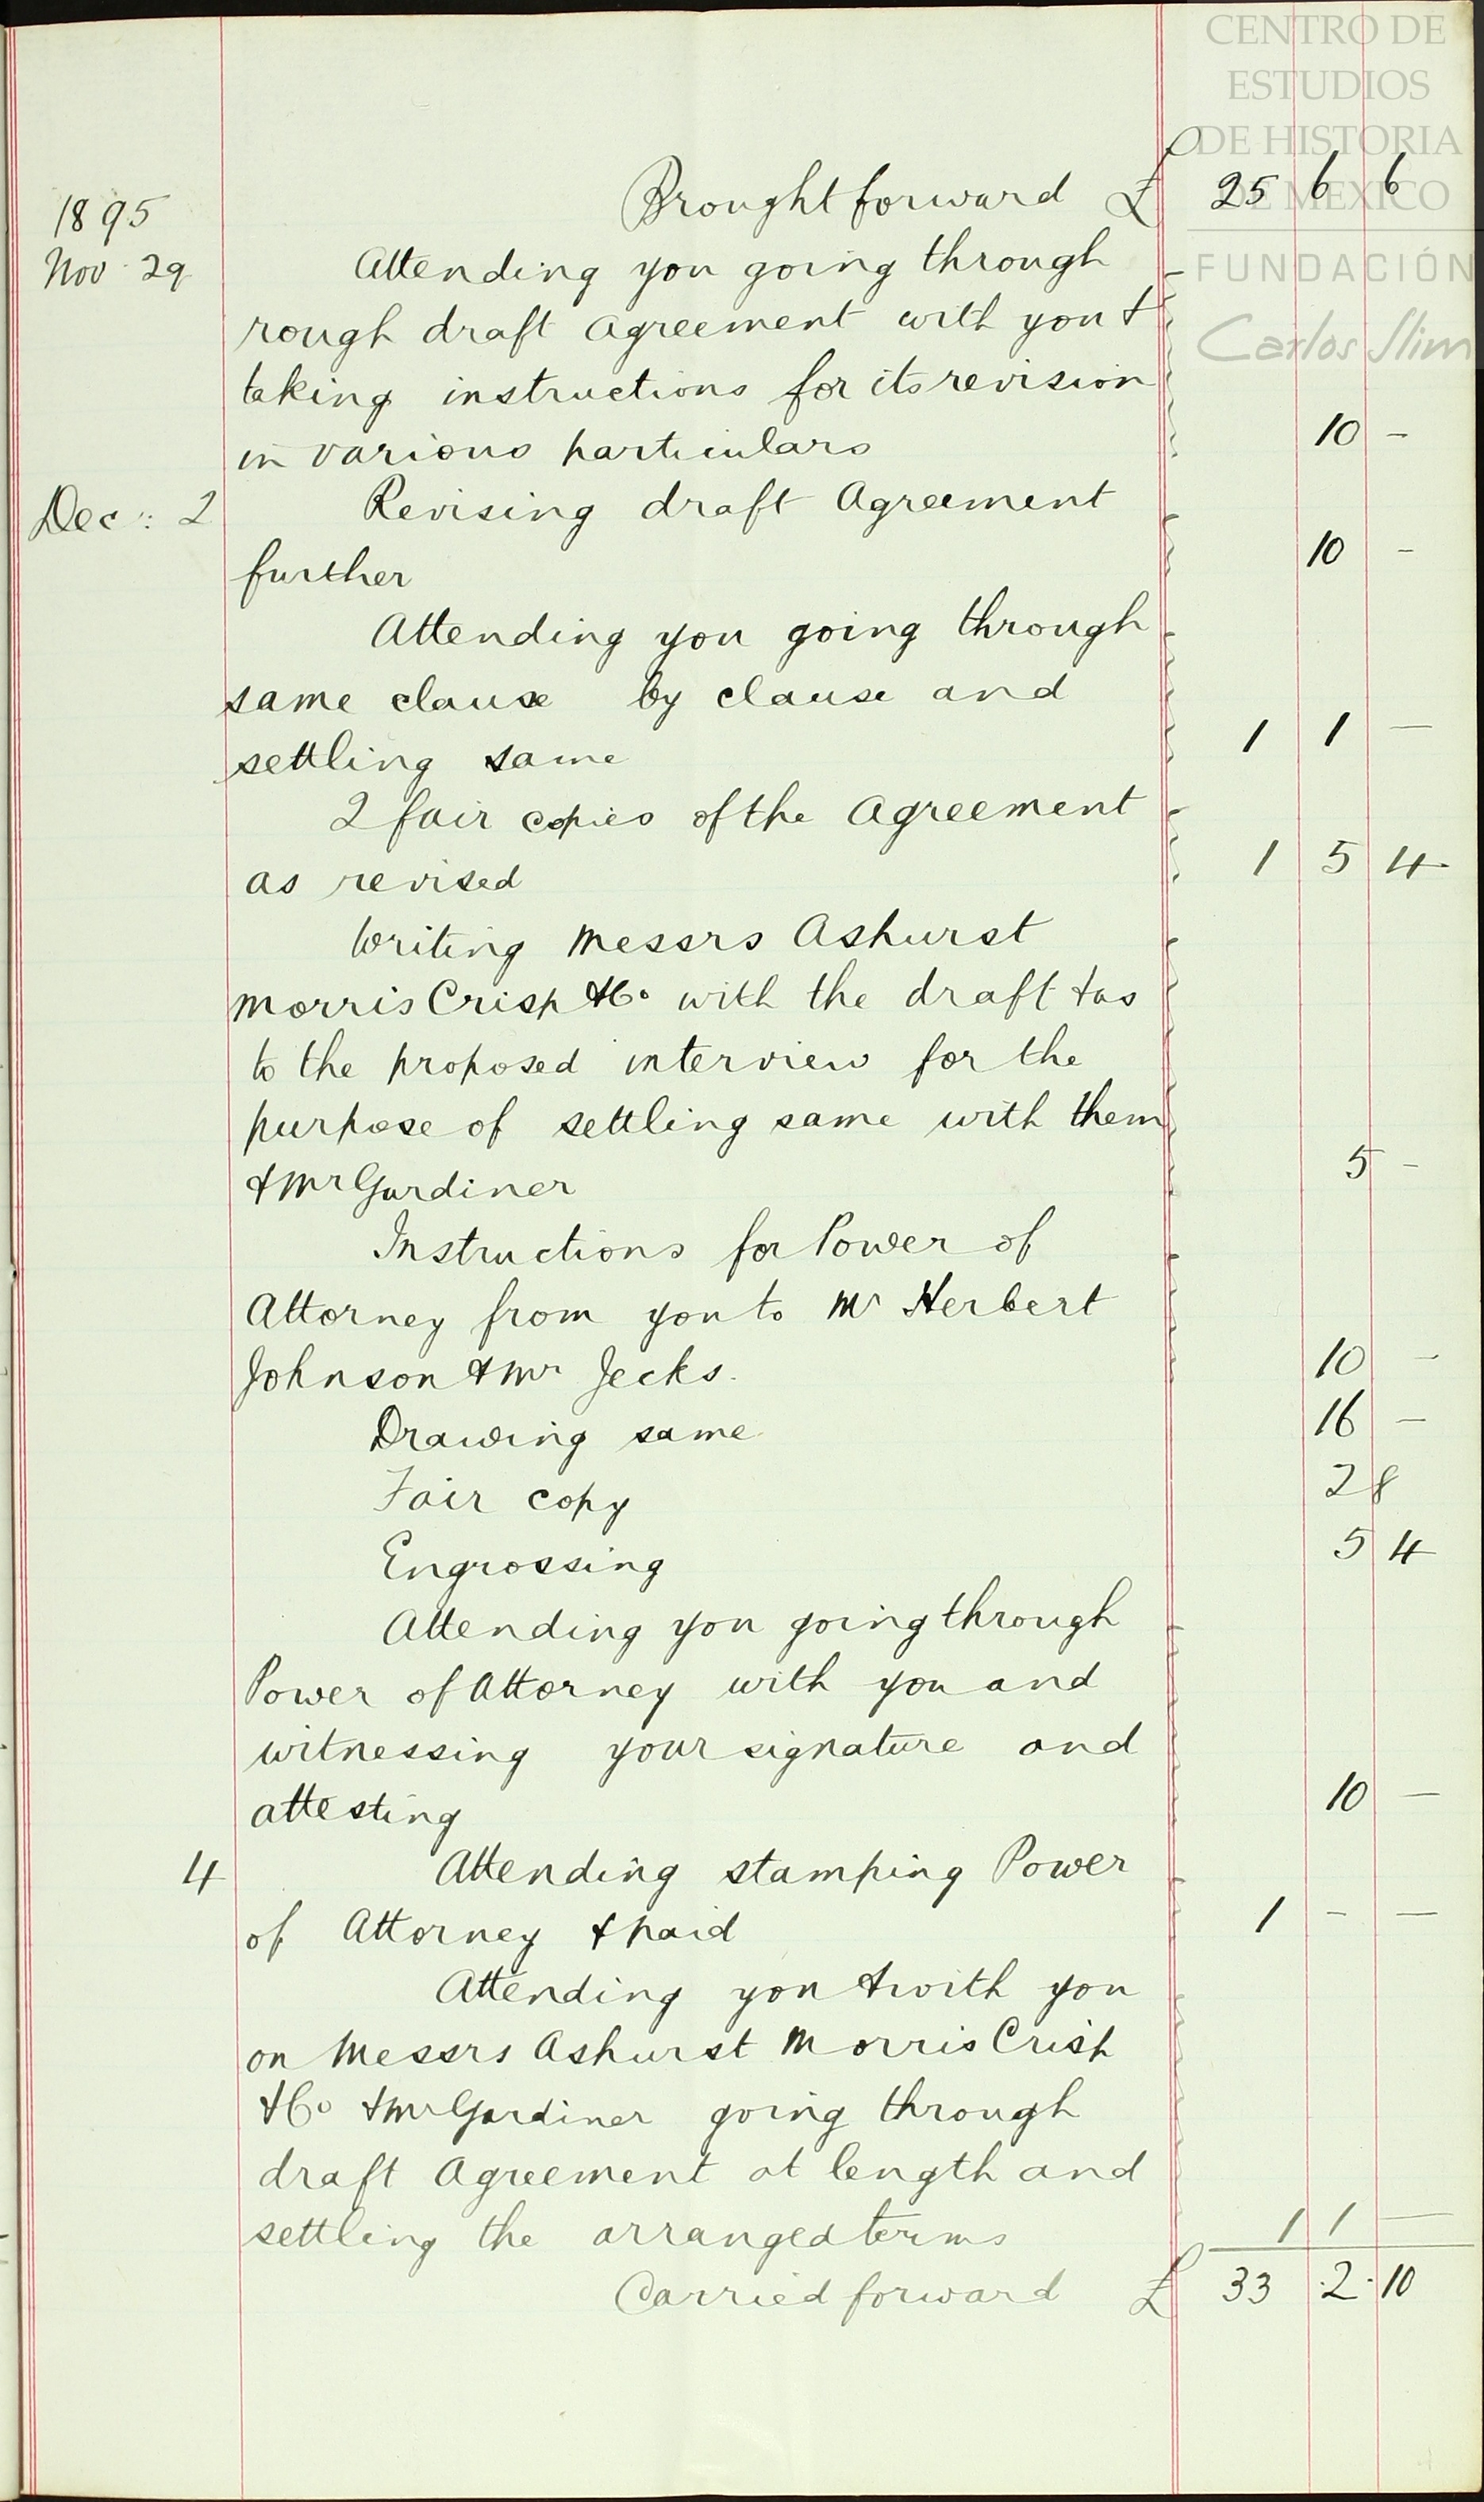 CENTRO DE
ESTUDIOS
DE HISTORIA
DE MEXICO
FUNDACIÓN
Carlos Slim
Brought forward £ 25 6 6
1895
Nov 29 Attending you going through
rough draft Agreement with you &
taking instructions for its revision
in various particulars 10 -
Dec: 2 Revising draft Agreement
further 10 -
Attending you going through
same clause by clause and
settling same 1 1 -
2 fair copies of the Agreement
as revised 1 5 4
Writing Messrs Ashurst
Morris Crisp & Co with the draft & as
to the proposed interview for the
purpose of settling same with them
& Mr Gardiner 5 -
Instructions for Power of
Attorney from you to Mr Herbert
Johnson & Mr Jecks. 10 -
Drawing same 16 -
Fair copy 2 8
Engrossing 5 4
Attending you going through
Power of Attorney with you and
witnessing your signature and
attesting 10 -
4 Attending stamping Power
of Attorney & paid 1 - -
Attending you & with you
on Messrs Ashurst Morris Crisp
& Co & Mr Gardiner going through
draft Agreement at length and
settling the arranged terms 1 1 -
Carried forward £ 33 . 2 . 10